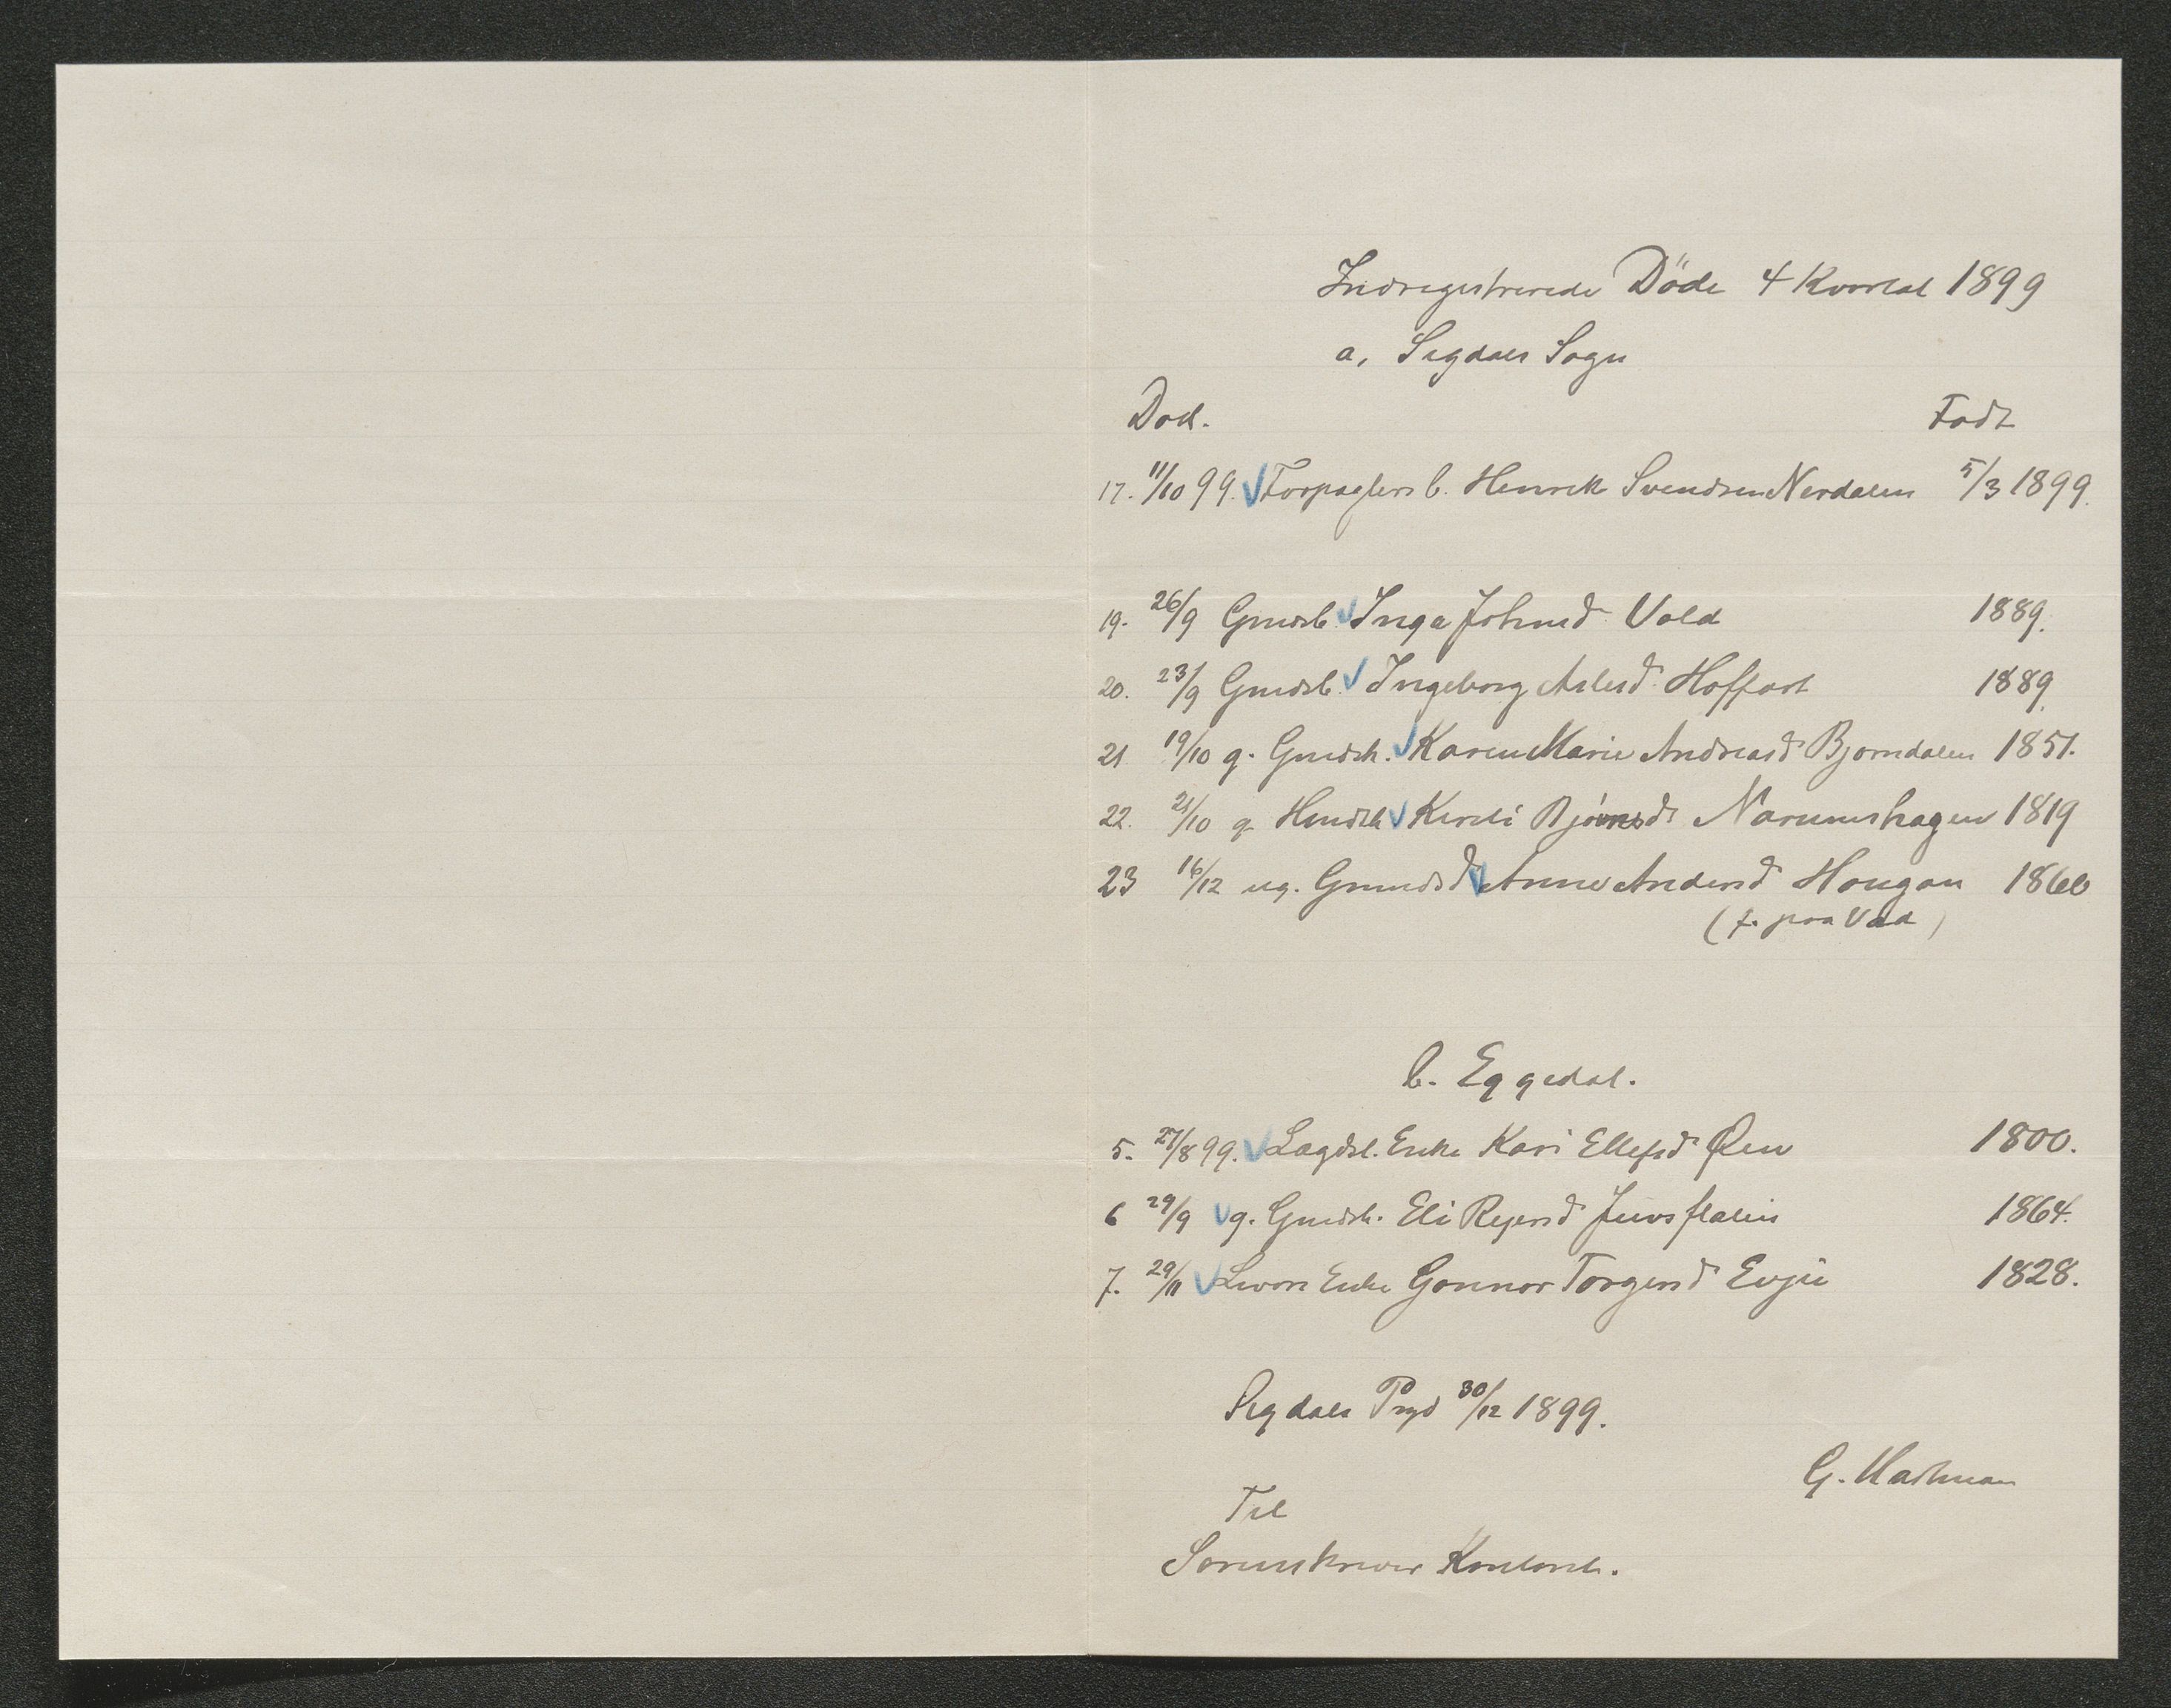 Indregistrerede Döde 4 Kvartal 1899
a, Sigdals Sogn
Död. Födt
17. 11/10 99. Forpagters b. Henrik Svendsen Nerdalen 5/3 1899.
19. 26/9 Gmdsb. Inga Johnsd. Vold 1889.
20. 23/9 Gmdsb. Ingeborg Aslesd. Hoffart 1889.
21 19/10 g. Gmdsk. Karen Marie Andreasd. Bjorndalen 1851.
22. 21/10 g. Hmdsk Kirsti Bjørnsd. Narumshagen 1819
23 16/12 ug. Grmdsd Anne Andersd Hougan 1866
(f. paa Vad)
b. Eggedal.
5. 27/8 99. Lægdsl. Enke Kari Ellefsd. Øen 1800.
6 29/9 g. Gmdsk. Eli Reyersd Juvsflaten 1864.
7. 29/11 Enke Gonnor Torgersd Evju 1828.
Sigdals Prgd 30/12 1899.
G.
Til
Sorenskriver Kontoret.